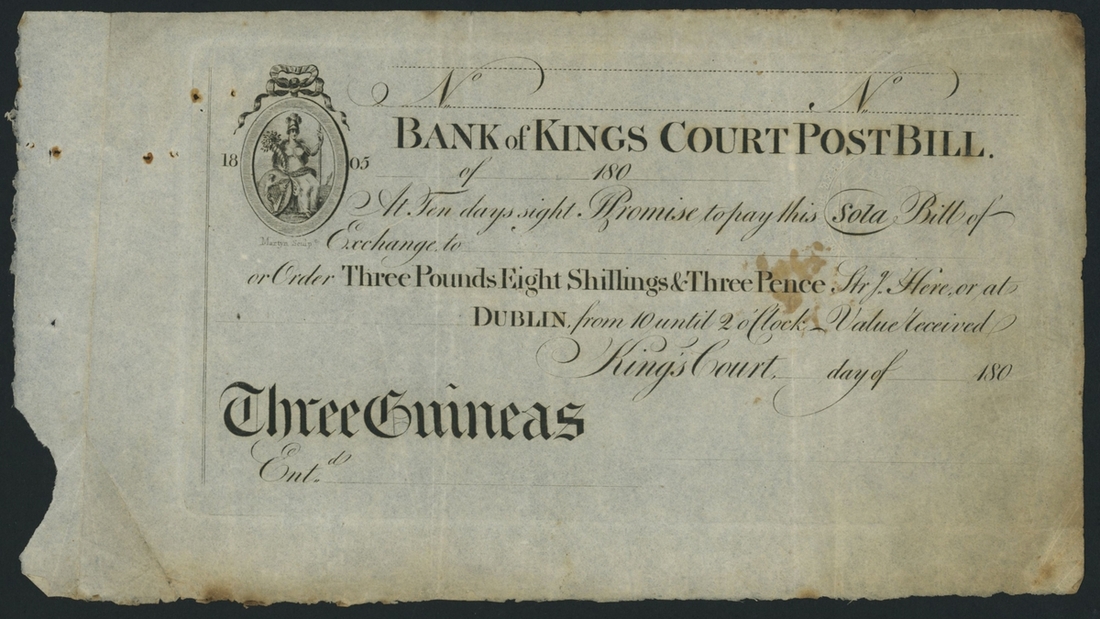 No. No.
BANK of KINGS COURT POST BILL.
18 05
of 180
At Ten days sight I Promise to pay this Sola Bill of
Martyn Sculpt.
Exchange, to
or Order Three Pounds Eight Shillings & Three Pence Str g. Here, or, at
DUBLIN, from 10 until 2 o'Clock - Value received
King's Court, day of 180
Three Guineas
Entd.